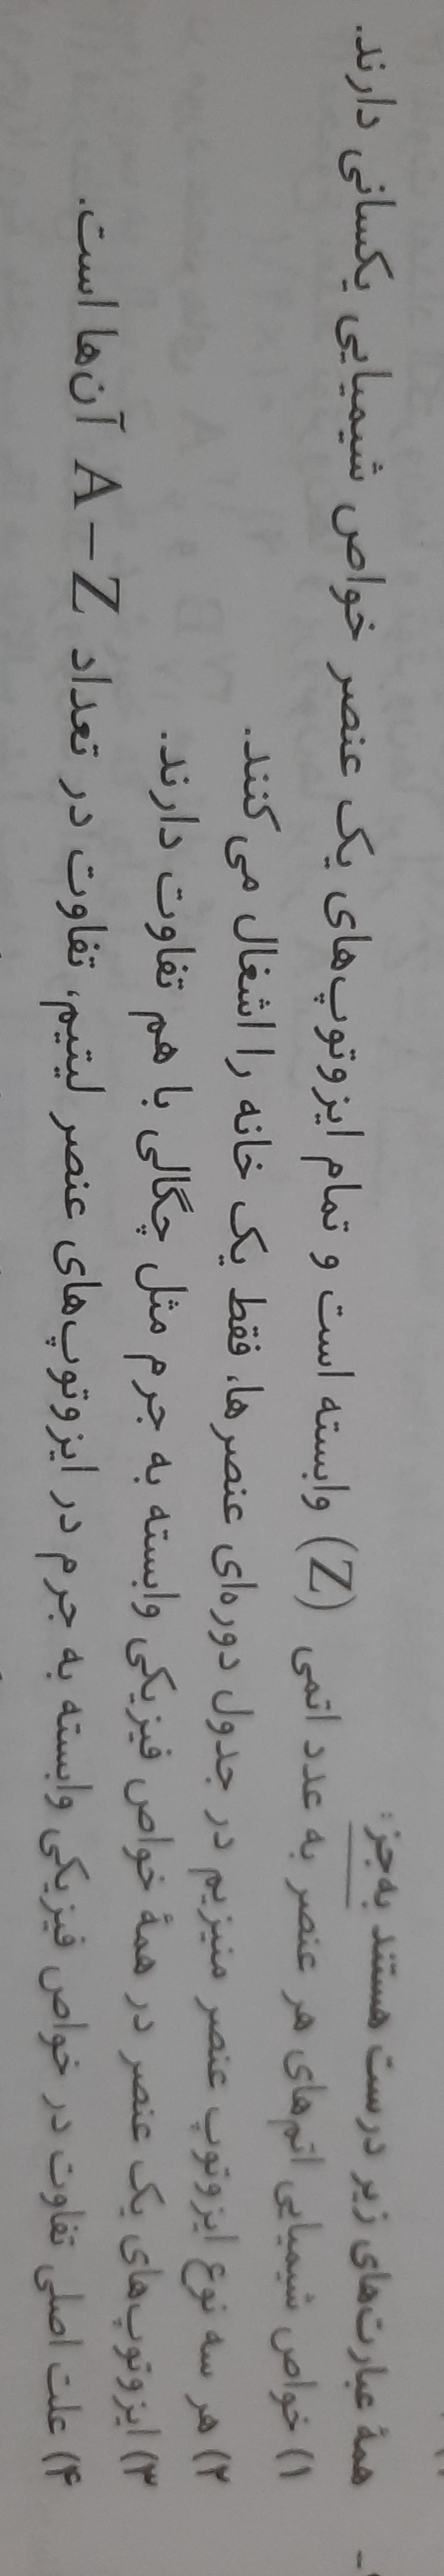 - همهٔ عبارت‌های زیر درست هستند به‌جز:
۱) خواص شیمیایی اتم‌های هر عنصر به عدد اتمی (Z) وابسته است و تمام ایزوتوپ‌های یک عنصر خواص شیمیایی یکسانی دارند.
۲) هر سه نوع ایزوتوپ عنصر منیزیم در جدول دوره‌ای عنصرها، فقط یک خانه را اشغال می‌کنند.
۳) ایزوتوپ‌های یک عنصر در همهٔ خواص فیزیکی وابسته به جرم مثل چگالی با هم تفاوت دارند.
۴) علت اصلی تفاوت در خواص فیزیکی وابسته به جرم در ایزوتوپ‌های عنصر لیتیم، تفاوت در تعداد A-Z آن‌ها است.